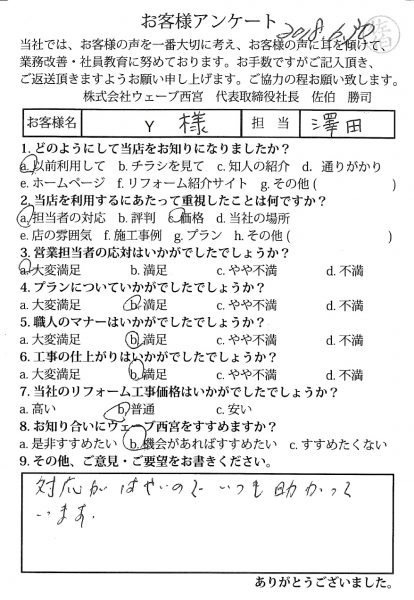 お客様アンケート 2018.6.30
当社では、お客様の声を一番大切に考え、お客様の声に耳を傾けて、
業務改善・社員教育に努めております。お手数ですがご記入頂き、
ご返送頂きますようお願い申し上げます。ご協力の程お願い致します。
株式会社ウェーブ西宮 代表取締役社長 佐伯 勝司
お客様名 Y 様 担当 澤田
1. どのようにして当店をお知りになりましたか?
a. 以前利用して b. チラシを見て c. 知人の紹介 d. 通りがかり
e. ホームページ f. リフォーム紹介サイト g. その他( )
2. 当店を利用するにあたって重視したことは何ですか?
a. 担当者の対応 b. 評判 c. 価格 d. 当社の場所
e. 店の雰囲気 f. 施工事例 g. プラン h. その他( )
3. 営業担当者の応対はいかがでしたでしょうか?
a. 大変満足 b. 満足 c. やや不満 d. 不満
4. プランについていかがでしたでしょうか?
a. 大変満足 b. 満足 c. やや不満 d. 不満
5. 職人のマナーはいかがでしたでしょうか?
a. 大変満足 b. 満足 c. やや不満 d. 不満
6. 工事の仕上がりはいかがでしたでしょうか?
a. 大変満足 b. 満足 c. やや不満 d. 不満
7. 当社のリフォーム工事価格はいかがでしたでしょうか?
a. 高い b. 普通 c. 安い
8. お知り合いにウェーブ西宮をすすめますか?
a. 是非すすめたい b. 機会があればすすめたい c. すすめたくない
9. その他、ご意見・ご要望をお書きください。
対応がはやいのでいつも助かって
います.
ありがとうございました。